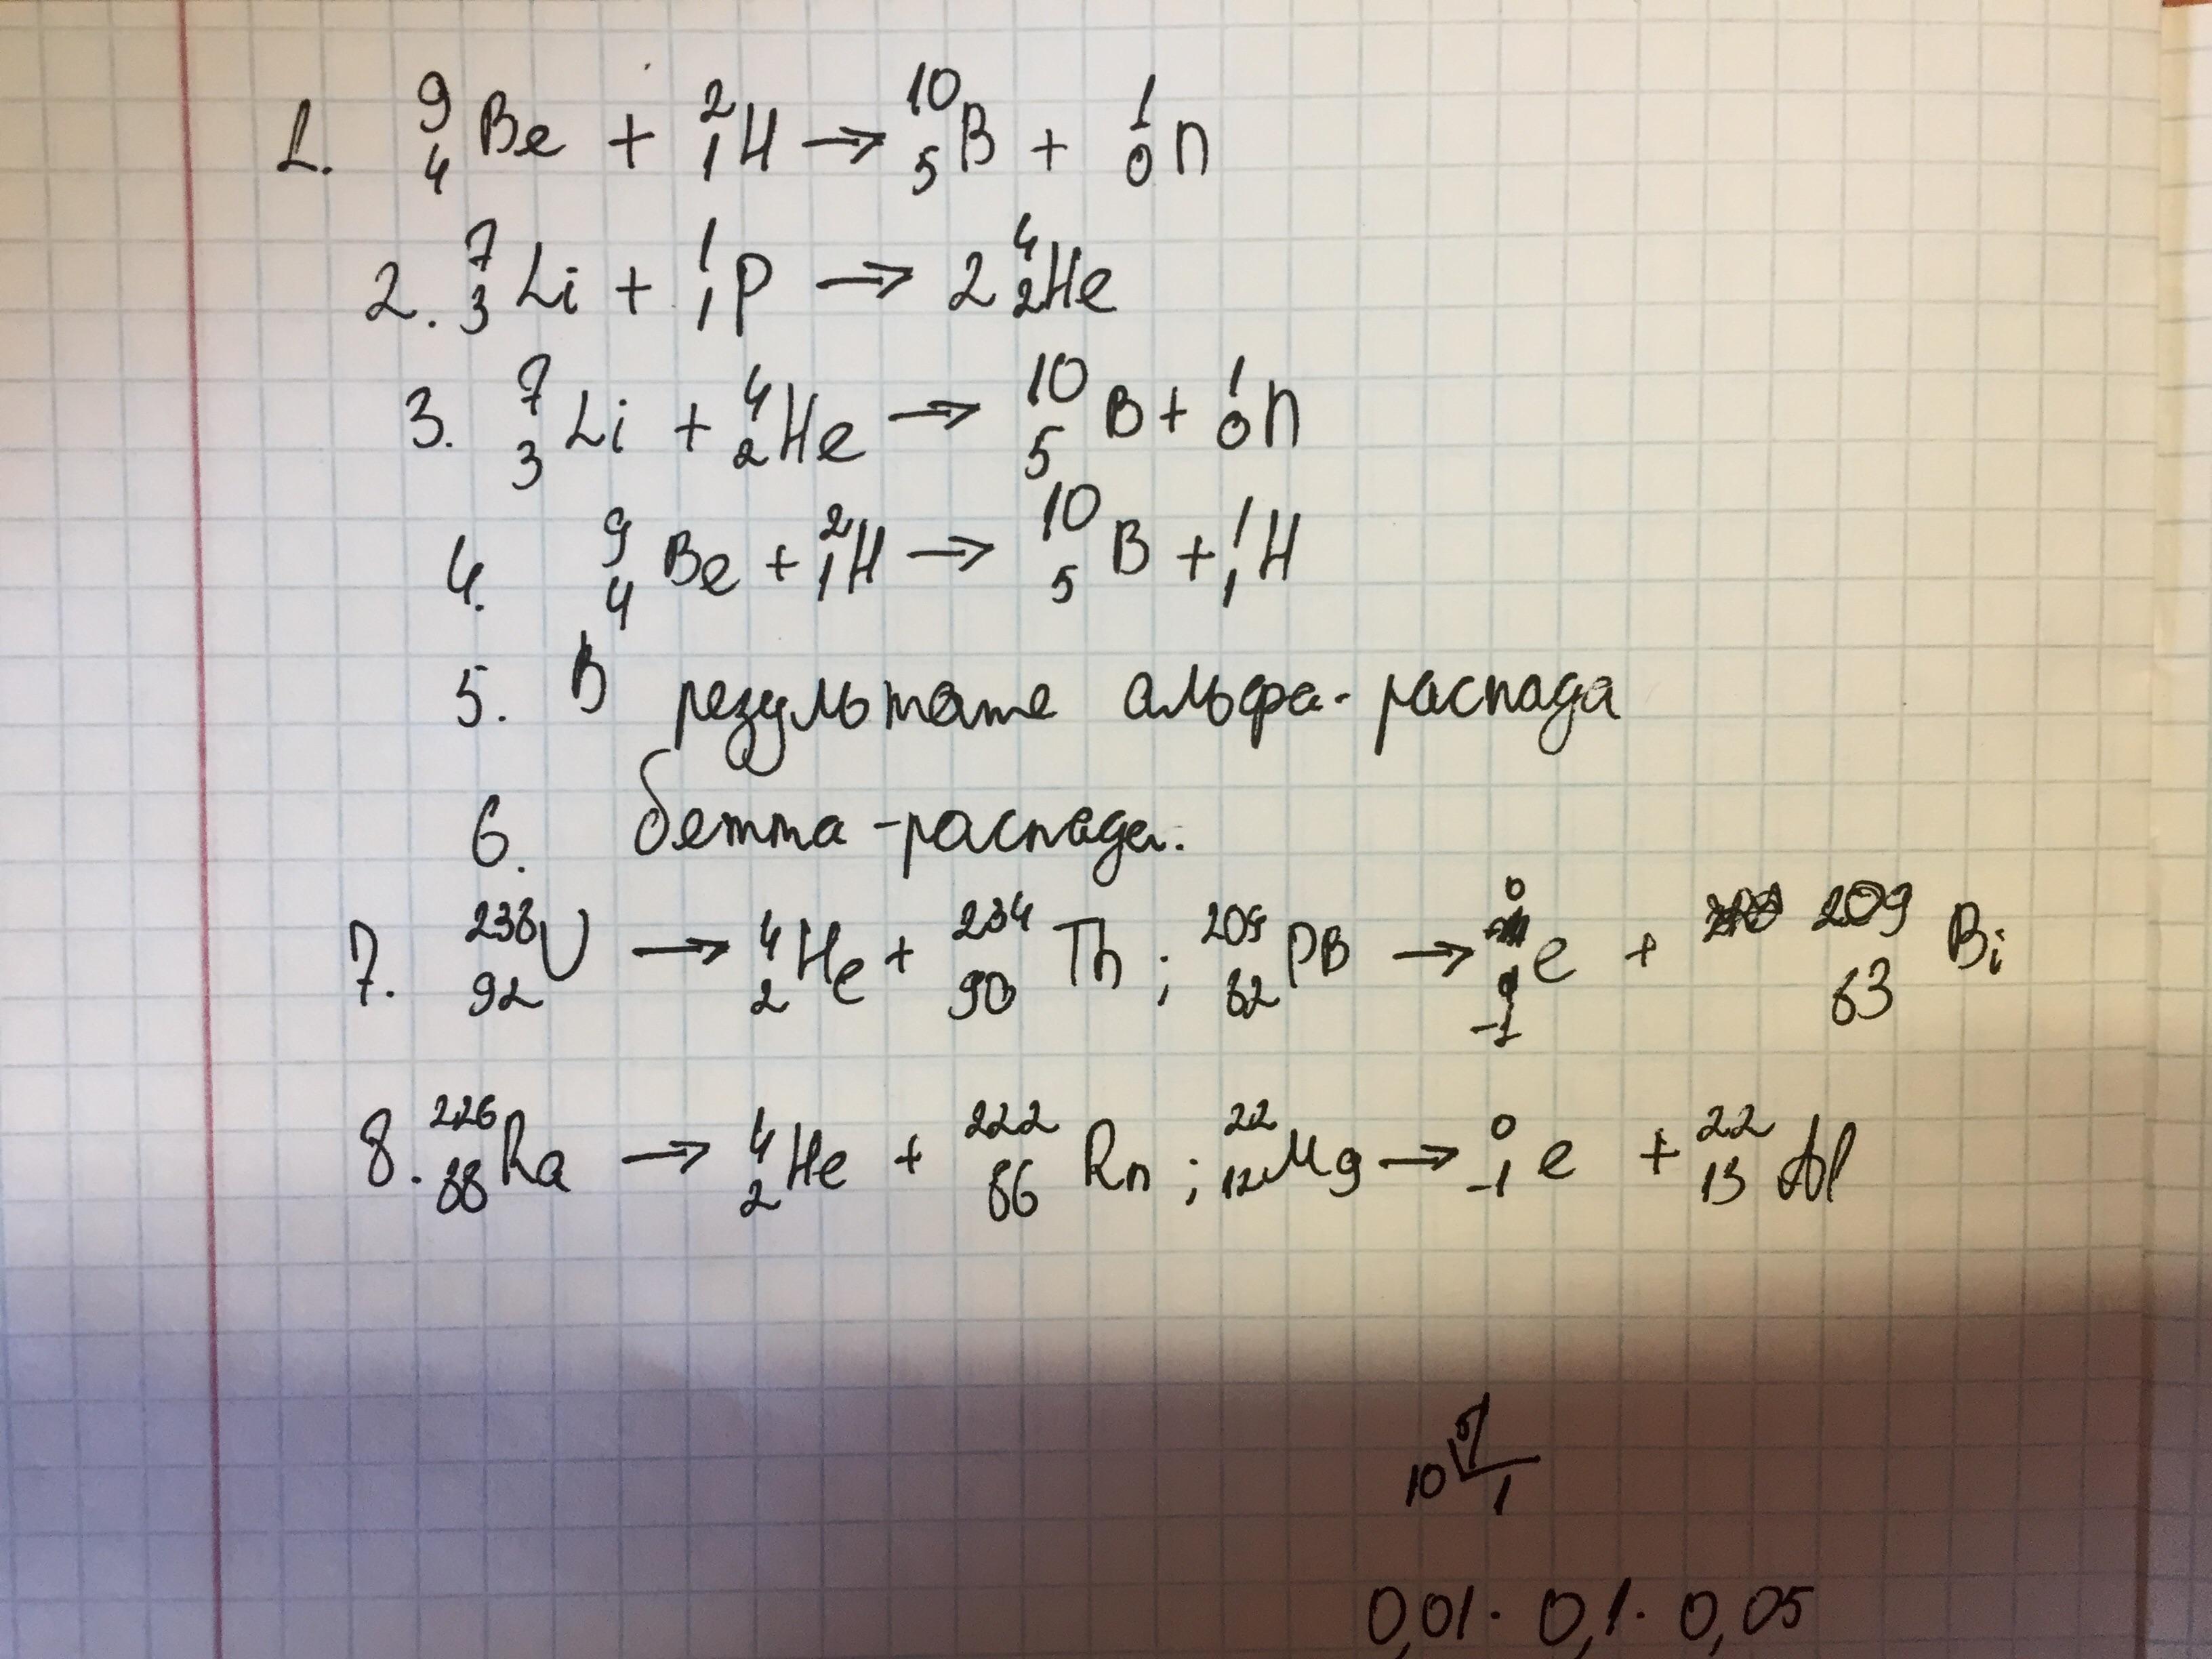 1. ⁹₄Be + ²₁H → ¹⁰₅B + ¹₀n
2. ⁷₃Li + ¹₁p → 2 ⁴₂He
3. ⁷₃Li + ⁴₂He → ¹⁰₅B + ¹₀n
4. ⁹₄Be + ²₁H → ¹⁰₅B + ¹₁H
5. В результате альфа-распада
6. бетта-распада.
7. ²³⁸₉₂U → ⁴₂He + ²³⁴₉₀Th ; ²⁰⁹₈₂PB → ⁰₋₁e + ²⁰⁹₈₃Bi
8. ²²⁶₈₈Ra → ⁴₂He + ²²²₈₆Rn ; ²²₁₂Mg → ⁰₋₁e + ²²₁₃Al
10 1
0,01 · 0,1 · 0,05